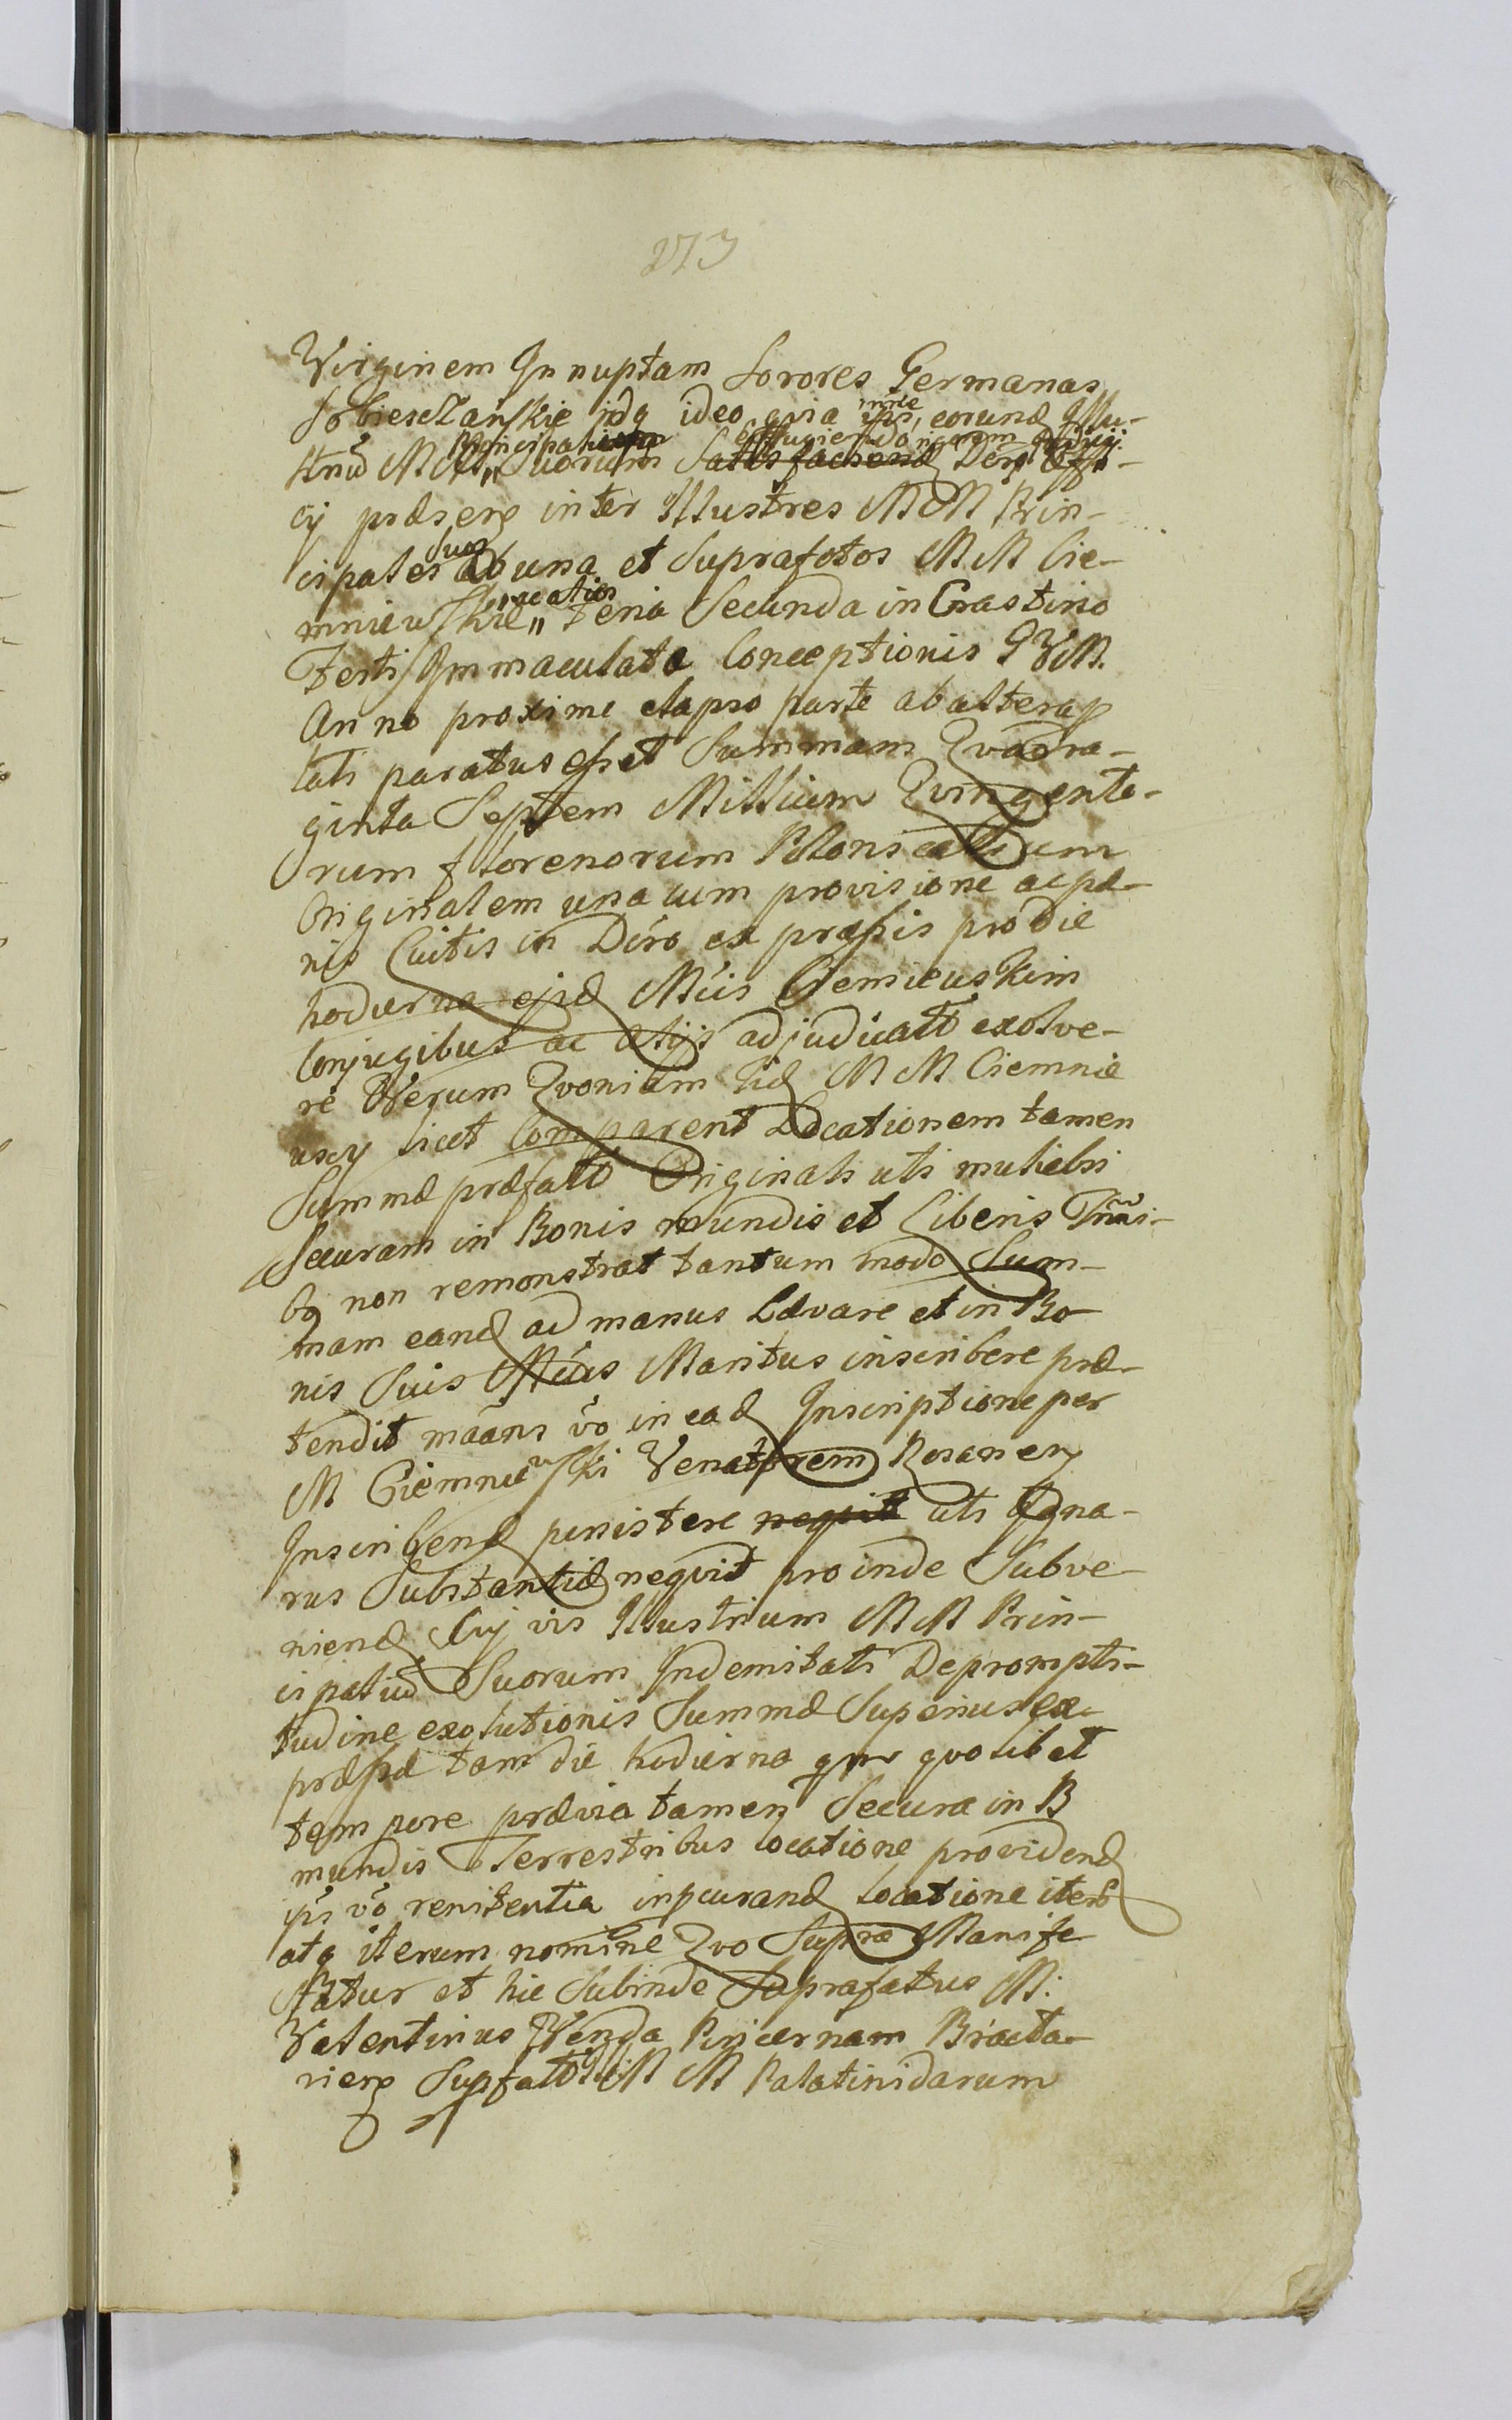 273
Virginem Innuptam Sorores Germanas
Sobieszczańskie idq ideo quia eorund Illu-
strium MM Principalium Suorum effugiendo rigorem Judicij
cij præsens inter Illustres MM Prin-
cipales suos ab una et Suprafatos MM Cie-
mniewskie ac alios Feria Secunda in Crastino
Festi Immaculatæ Conceptionis BVM.
Anno proxime elapso parte ab altera
lati paratus esset Summam Quadra-
ginta Septem Millium Quingento-
rum florenorum Polonicalium
Originalem una cum provisione ac pæ-
nis luitis in Dero expressis pro die
hodierna ejsd Mcis Ciemiewskim
Conjugibus ac alijs adjudicat exolve-
re Verum Quoniam iid MM Ciemnie
wscy licet Comparent Locationem tamen
Summæ præfatæ Originali uti muliebri
Securam in Bonis mundis et Liberis Trri-
bq non remonstrat tantum modo Sum-
mam eand ad manus Levare et in Bo-
nis Suis Mcus Maritus inscribere præ-
tendit maans vo in ead Inscriptione per
M Ciemniewski Venatorem Rosanen
Inscribend persistere nequit uti Igna-
rus Substantiæ nequit proinde Subve-
niend Cujvis Illustrium MM Prin-
cipaliu Suorum Indemnitati De prompti-
tudine exolutionis Summæ Superius ex-
præssæ tam die hodierna qm quolibet
tempore prævia tamen Secura in B
mundis Terrestribus locatione providend
ipi vo renitentia in procurand locatione iteru
atq iterum nomine Quo Supra Manife
statur et hic Subinde Suprafatus M.
Valentinus Wenda Pincernam Bracla-
vien Suprafat MM Palatinidarum